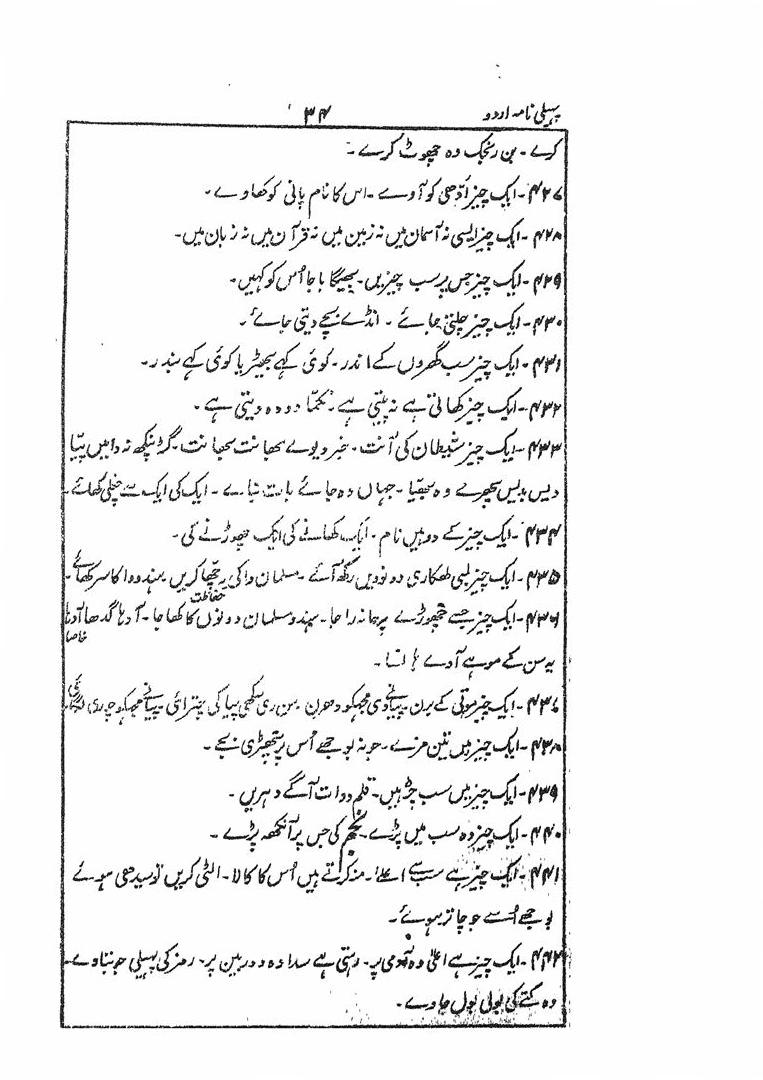 پہیلی نامہ اردو ۳۴
کرے ۔ بن رنجک وہ چھوٹ کرے ۔
۴۲۷ ۔ ایک چیز آدھی کو آوے ۔ اس کا نام پانی کو کھاوے ۔
۴۲۸ ۔ ایک چیز ایسی نہ آسمان میں نہ زمین میں نہ قرآن میں نہ زبان میں ۔
۴۲۹ ۔ ایک چیز جس پر سب چیزیں ۔ بھیگا باجا اُس کو کہیں ۔
۴۳۰ ۔ ایک چیز چلتی جائے ۔ انڈے بچے دیتی جائے ۔
۴۳۱ ۔ ایک چیز سب گھروں کے اندر ۔ کوئی کہے بھیڑیا کوئی کہے بندر ۔
۴۳۲ ۔ ایک چیز کھاتی ہے نہ پیتی ہے ۔ نکما دودہ دیتی ہے ۔
۴۳۳ ۔ ایک چیز شیطان کی آنت ۔ خبر دیوے بھانت بھانت ۔ گڑ پنکھ نہ واہیں پیّا
دیس بدیس پھرے وہ بھیا ۔ جہاں وہ جائے بات بتاے ۔ ایک کی ایک سے چغلی کھائے ۔
۴۳۴ ۔ ایک چیز کے دو ہیں نام ۔ ایک کھانے کی ایک چھوڑنے کی ۔
۴۳۵ ۔ ایک چیز لمبی ٹھکاری دونو دیں رکھ آئے ۔ مسلمان وا کی رچھا کریں ہندو وا کا سر کھائے ۔
حفاظت
۴۳۶ ۔ ایک چیز جسے چھوڑے پرجا نہ راجا ۔ ہندو مسلمان دونوں کا کھاجا ۔ آدہا گدھا آدہا
خاصا
یہ سن کے موہے آوے ہانسا ۔
۴۳۷ ۔ ایک چیز موتی کے برن پیا نے دی مجھکو دھرن ۔ سن ری سکھی پیا کی چترائی ۔ پیا نے مجھکو چوری لگائی
۴۳۸ ۔ ایک چیز میں تین مزے ۔ جو نہ بوجھے اُس پر تھپڑی بجے ۔
۴۳۹ ۔ ایک چیز میں سب چڑہیں ۔ قلم دوات آگے دہریں ۔
۴۴۰ ۔ ایک چیز وہ سب میں پڑے ۔ کی جس پر آنکھ پڑے ۔
۴۴۱ ۔ ایک چیز ہے سب سے اعلا ۔ منہ کرتے ہیں اُس کا کالا ۔ الٹی کریں تو سیدھی ہوئے
بوجھے اُسے جو چاتر ہوئے ۔
۴۴۲ ۔ ایک چیز ہے اعلیٰ وہ آدمی پر ۔ رہتی ہے سدا وہ دوربین پر ۔ رمز کی پہیلی جو بتاوے ۔
وہ کتے کی بولی بول جاوے ۔